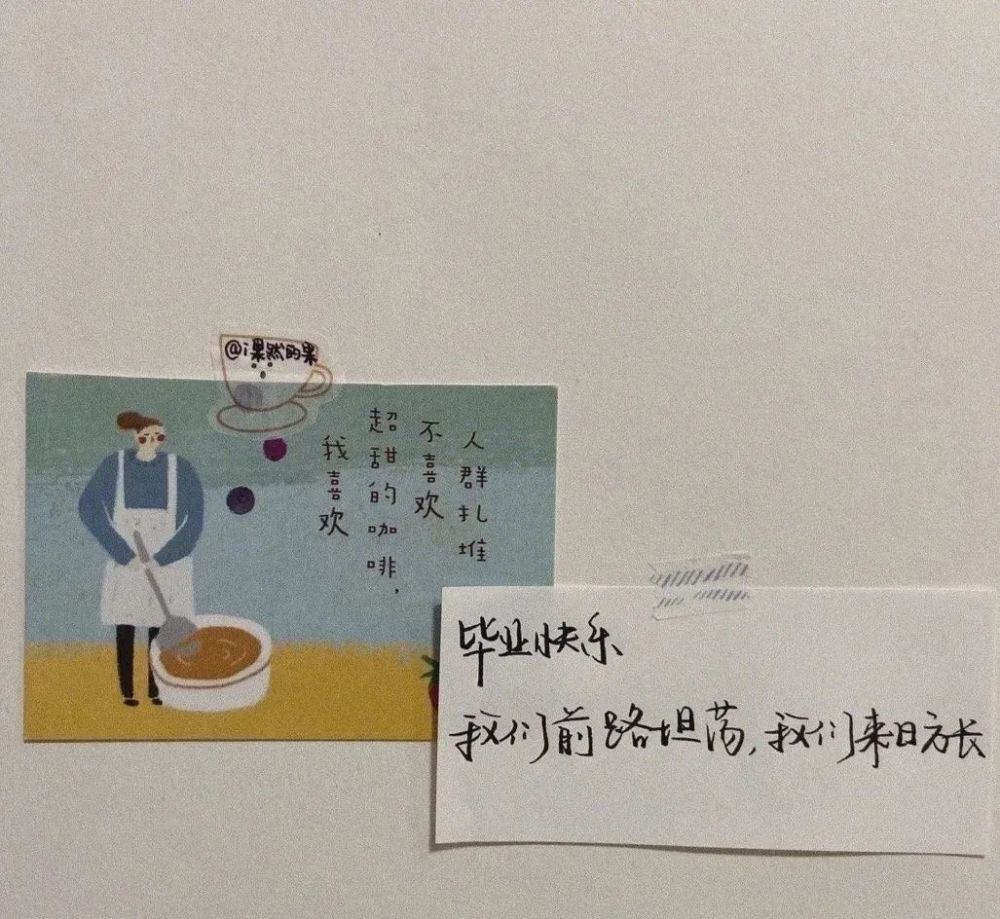 @i果然的果
人群扎堆
不喜欢
超甜的咖啡，
我喜欢
毕业快乐
我们前路坦荡，我们来日方长